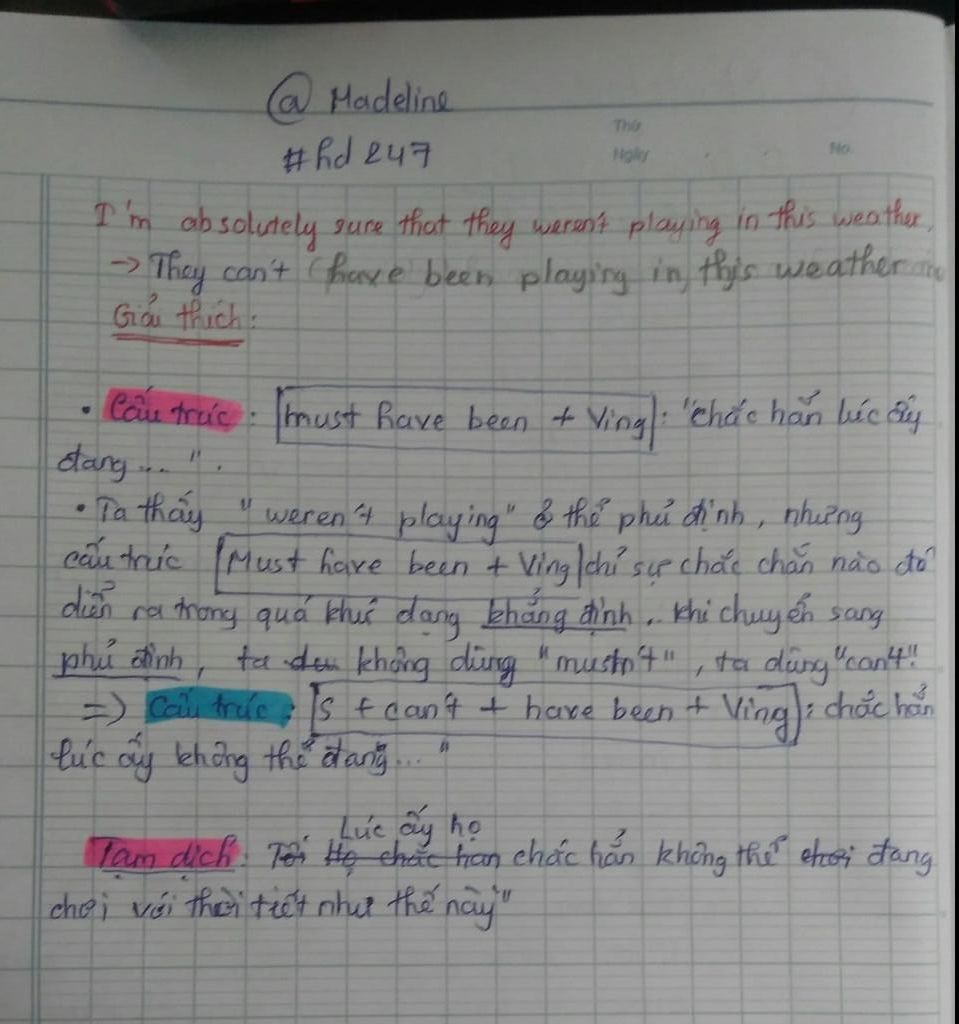 @ Madeline
#hd 247
Thứ
Ngày
No.
I'm absolutely sure that they weren't playing in this weather.
→ They can't (have been playing in this weather
Giải thích:
• Cấu trúc: must have been + Ving: "chắc hẳn lúc ấy
đang... ".
• Ta thấy "weren't playing" ở thể phủ định, nhưng
cấu trúc Must have been + Ving chỉ sự chắc chắn nào đó
diễn ra trong quá khứ dạng khẳng định. Khi chuyển sang
phủ định, ta không dùng "mustn't", ta dùng "can't".
=> Cấu trúc: S + can't + have been + Ving: chắc hẳn
lúc ấy không thể đang... "
Lúc ấy họ
Tạm dịch: Tôi Họ chắc hẳn chắc hẳn không thể chơi đang
chơi với thời tiết như thế này"